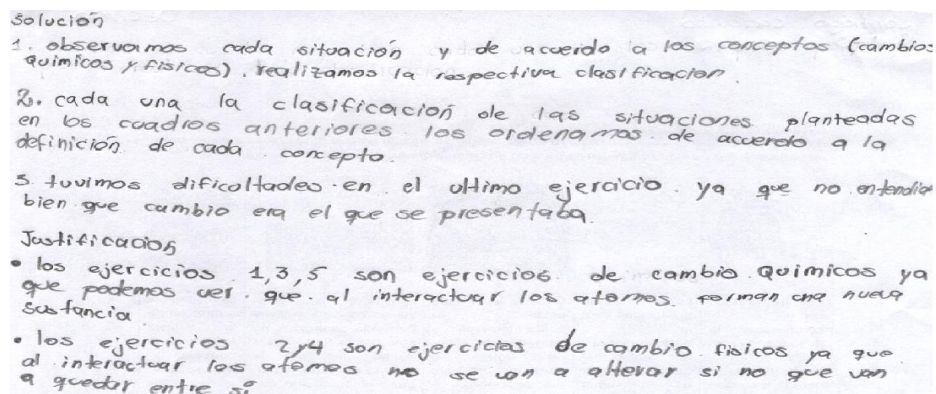 solución
1. observamos cada situación y de acuerdo a los conceptos (cambios
quimicos y fisicos), realizamos la respectiva clasificacion.
2. cada una la clasificación de las situaciones planteadas
en los cuadros anteriores los ordenamos de acuerdo a la
definición de cada concepto.
3 tuvimos dificultades en el ultimo ejercicio ya que no entendia
bien que cambio era el que se presentaba.
Justificación
• los ejercicios 1,3,5 son ejercicios de cambio Quimicos ya
que podemos ver que al interactuar los atomos forman una nueva
sustancia
• los ejercicios 2y4 son ejercicios de cambio fisicos ya que
al interactuar los atomos no se van a alterar si no que van
a quedar entre sí